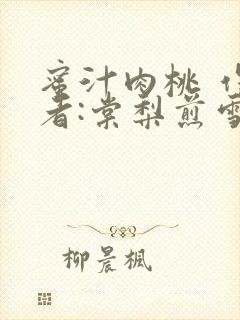 蜜汁肉桃
者:棠梨煎雪
柳晨枫